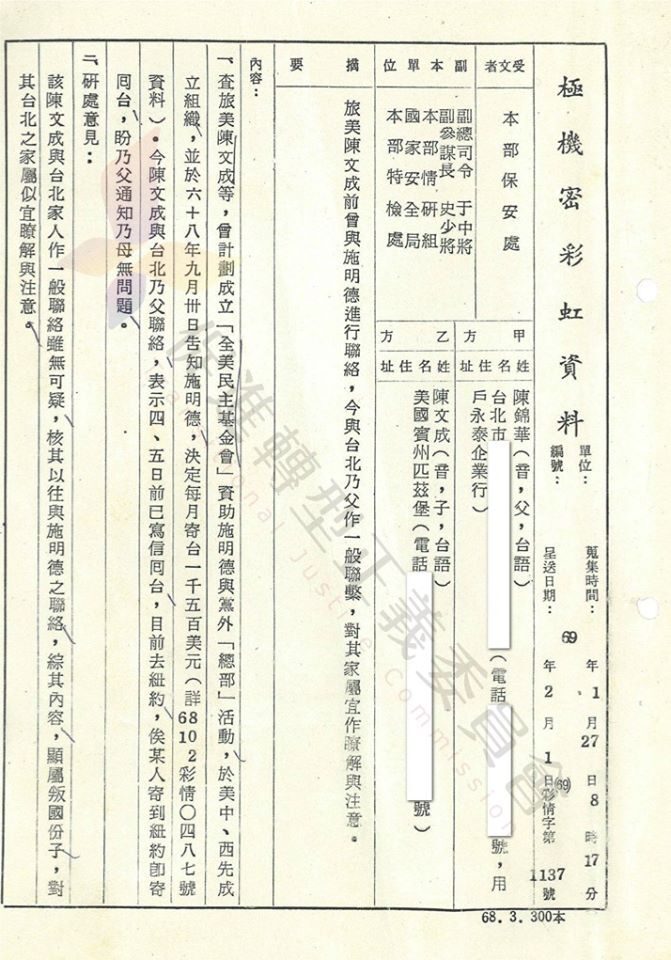 極機密彩虹資料
單位：
編號：
蒐集時間：69年1月27日8時17分
呈送日期：69年2月1日
(69)彩情字第1137號
受文者
本部保安處
副本單位
副總司令 于中將
副參謀長 史少將
本部情研組
國家安全局
本部特檢處
甲方
姓名住址
陳錦華（音，父，台語）
台北市（電話號，用
戶永泰企業行）
乙方
姓名住址
陳文成（音，子，台語）
美國賓州匹茲堡（電話號）
摘要
旅美陳文成前曾與施明德進行聯絡，今與台北乃父作一般聯繫，對其家屬宜作瞭解與注意。
內容：
一、查旅美陳文成等，曾計劃成立「全美民主基金會」資助施明德與黨外「總部」活動，於美中、西先成
立組織，並於六十八年九月卅日告知施明德，決定每月寄台一千五百美元（詳68102彩情〇四八七號
資料）。今陳文成與台北乃父聯絡，表示四、五日前已寫信囘台，目前去紐約，俟某人寄到紐約卽寄
囘台，盼乃父通知乃母無問題。
二、研處意見：
該陳文成與台北家人作一般聯絡雖無可疑，核其以往與施明德之聯絡，綜其內容，顯屬叛國份子，對
其台北之家屬似宜瞭解與注意。
68.3.300本
促進轉型正義委員會
Transitional Justice Commission